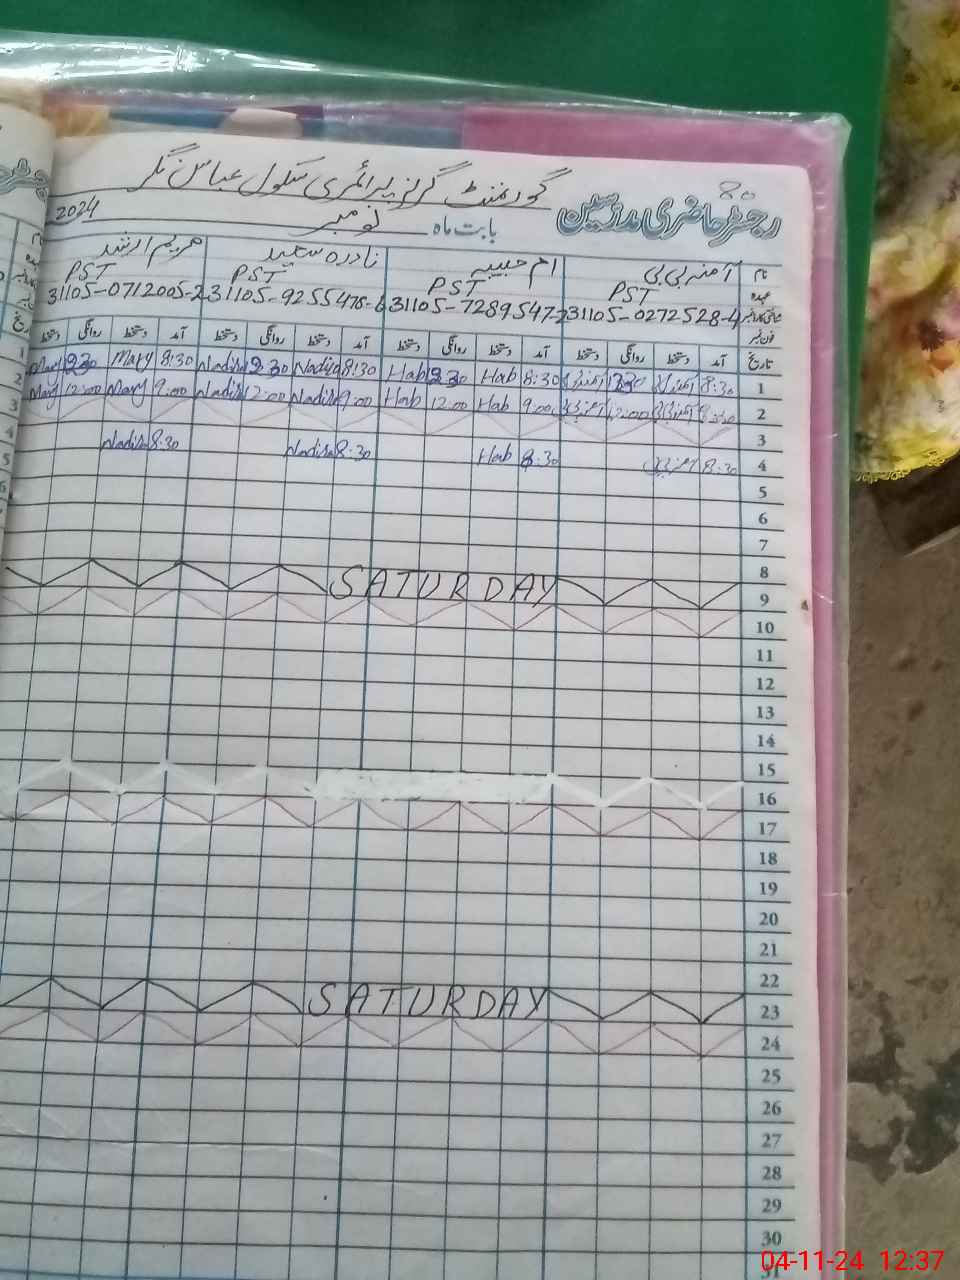 80
رجسٹر حاضری مدرسین
گورنمنٹ گرلز پرائمری سکول عباس نگر
بابت ماہ نومبر 2024
نام آمنہ بی بی ام حبیبہ نادرہ سعید مریم ارشد
عہدہ PST PST PST PST
31105-0272528-4 31105-7289547- 31105-9255476- 31105-0712005-2
فون نمبر
تاریخ آمد دستخط روانگی دستخط آمد دستخط روانگی دستخط آمد دستخط روانگی دستخط آمد دستخط روانگی دستخط
1 8:30 8:30 Hab Hab 8:30 Nadira Nadira 8:30 Mary Mary
2 12:00 9:00 Hab 12:00 Hab 9:00 Nadira 12:00 Nadira 9:00 Mary 12:00 Mary
3
4 8:30 8:30 Hab 8:30 Nadira 8:30 Nadira
5
6
7
8
9 SATURDAY
10
11
12
13
14
15
16
17
18
19
20
21
22
23 SATURDAY
24
25
26
27
28
29
30
31
04-11-24 12:37